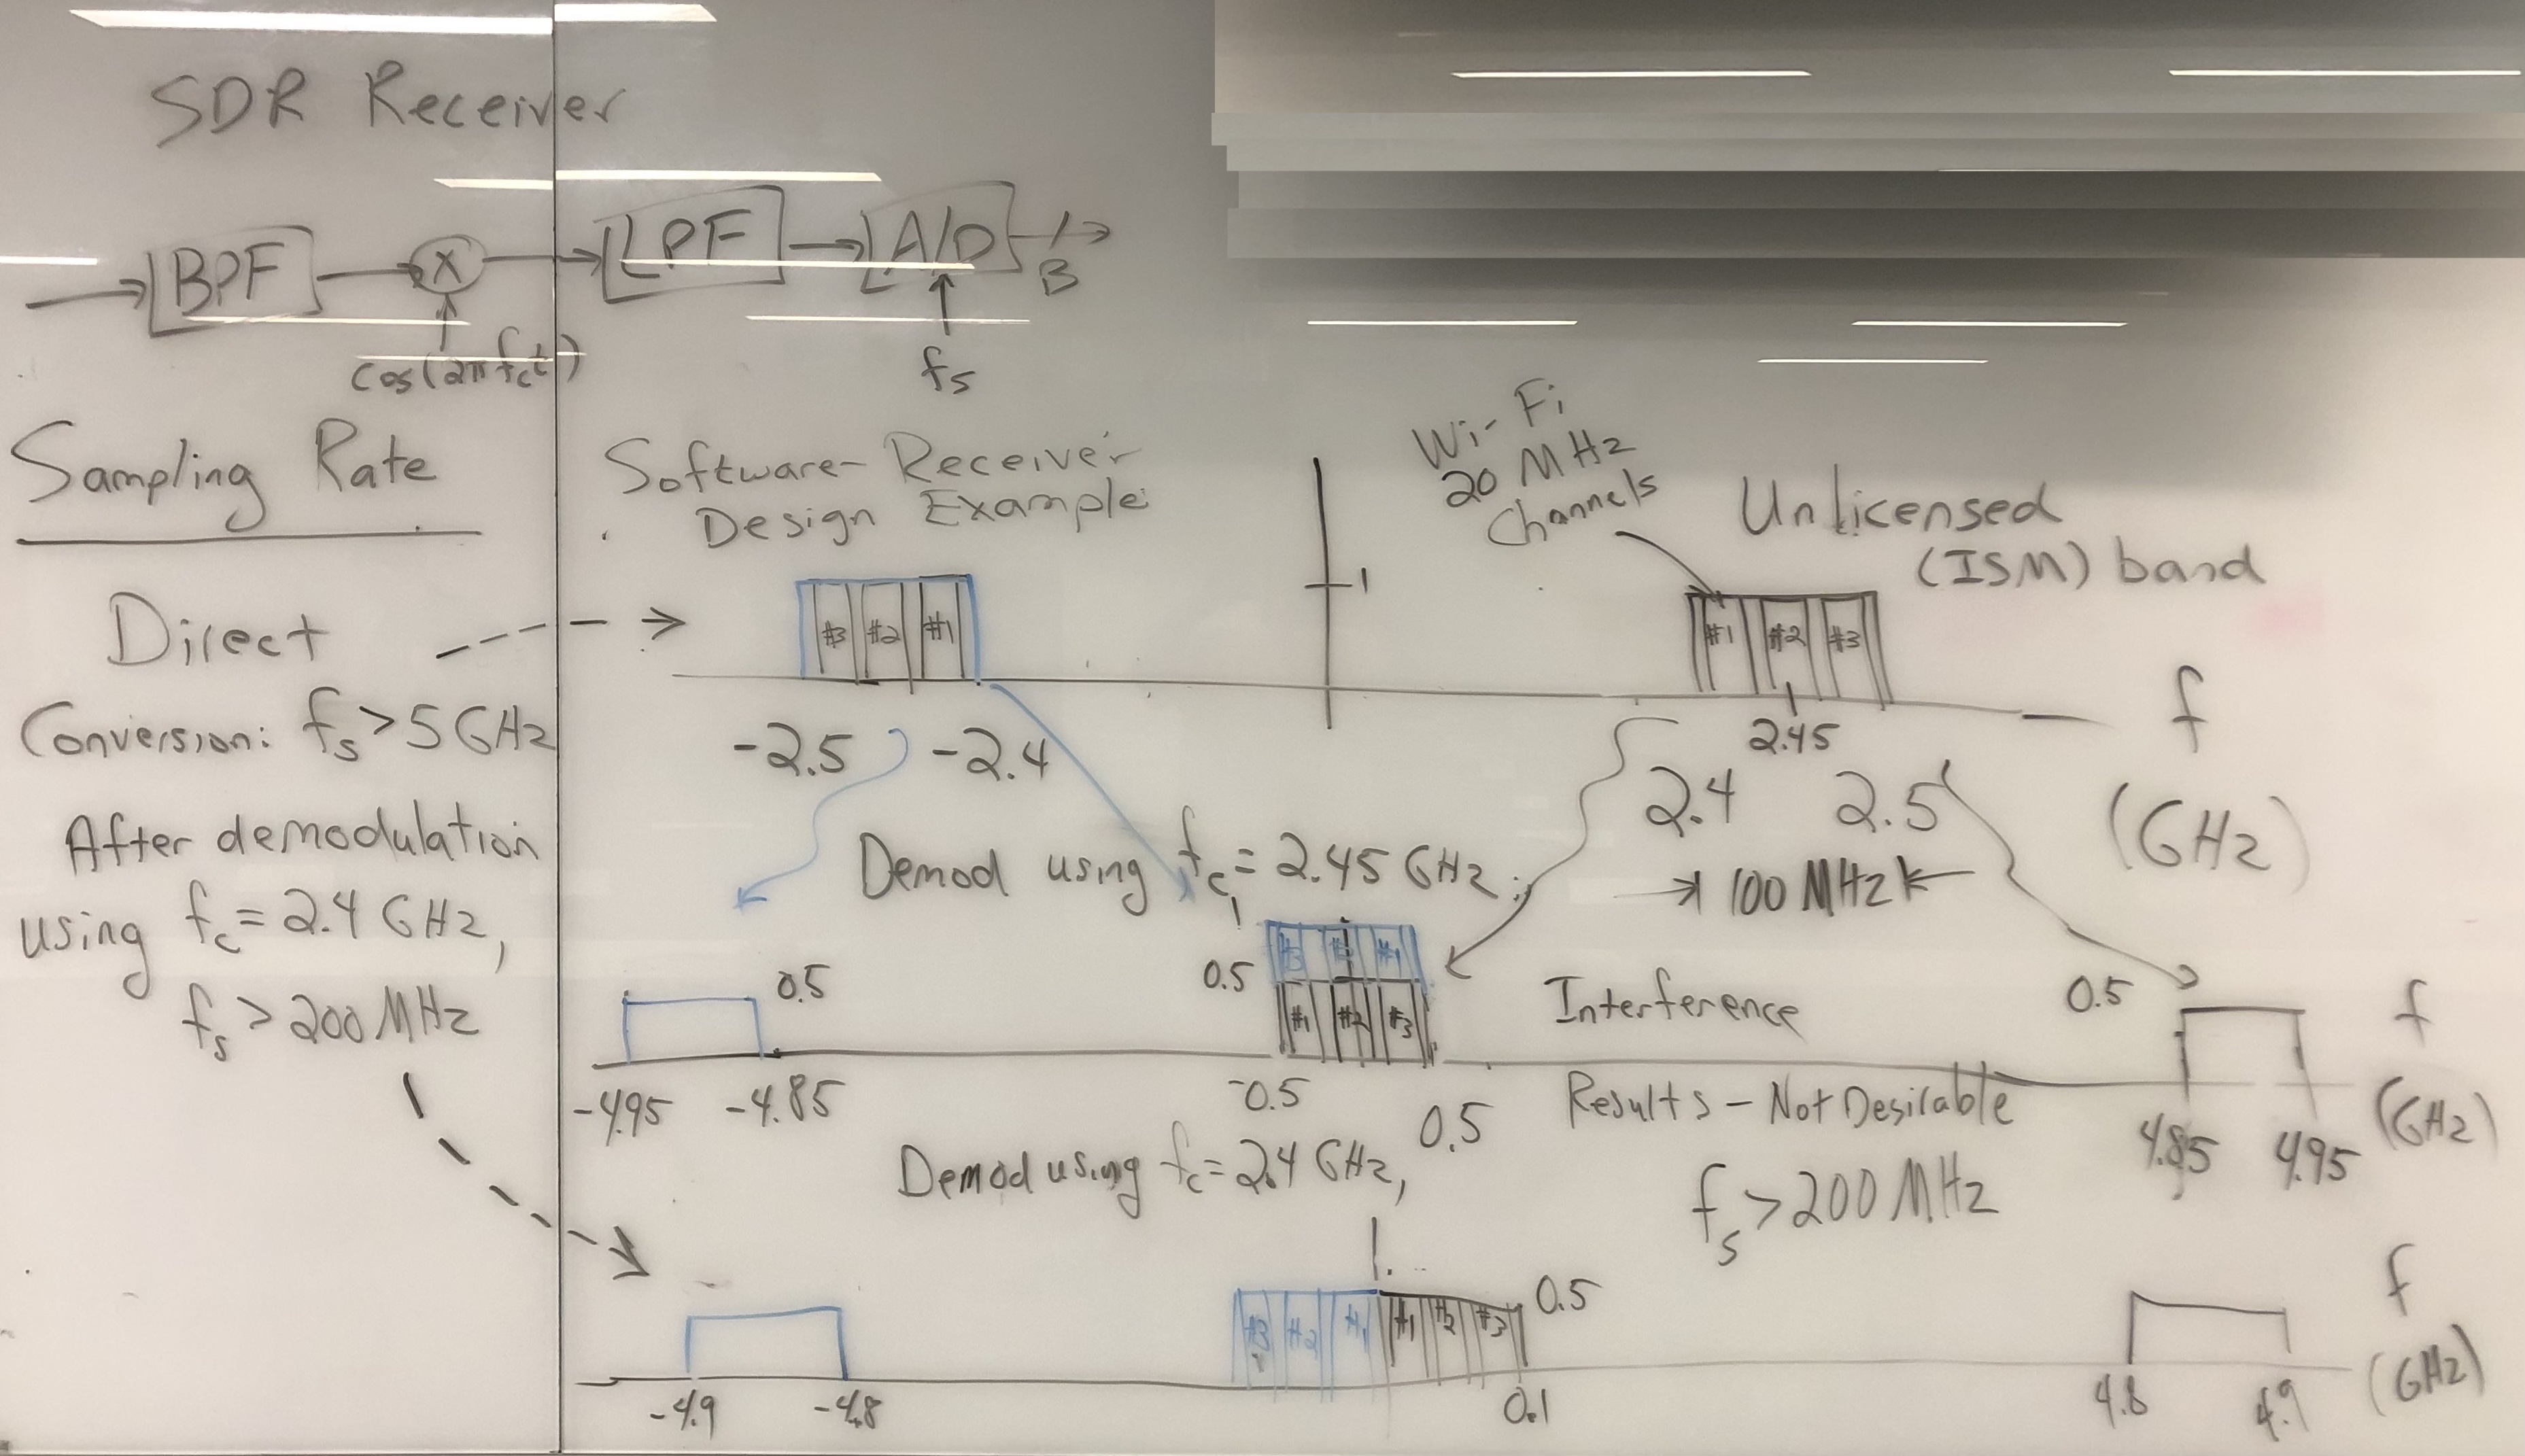 SDR Receiver
BPF
X
LPF
A/D
B
cos(2πfct)
fs
Sampling Rate
Direct
Conversion: fs > 5 GHz
After demodulation
using fc = 2.4 GHz,
fs > 200 MHz
Software- Receiver
Design Example:
1
Wi-Fi
20 MHz
Channels
Unlicensed
(ISM) band
#3 #2 #1
#1 #2 #3
-2.5 -2.4
2.45
2.4 2.5
100 MHz
f
(GHz)
Demod using fc = 2.45 GHz:
1
0.5
#3 #2 #1
0.5
#1 #2 #3
Interference
0.5
f
-4.95 -4.85
-0.5
0.5
Results - Not Desirable
4.85 4.95
(GHz)
Demod using fc = 2.4 GHz,
fs > 200 MHz
#3 #2 #1 #1 #2 #3
0.5
f
-4.9 -4.8
0.1
4.8 4.9
(GHz)